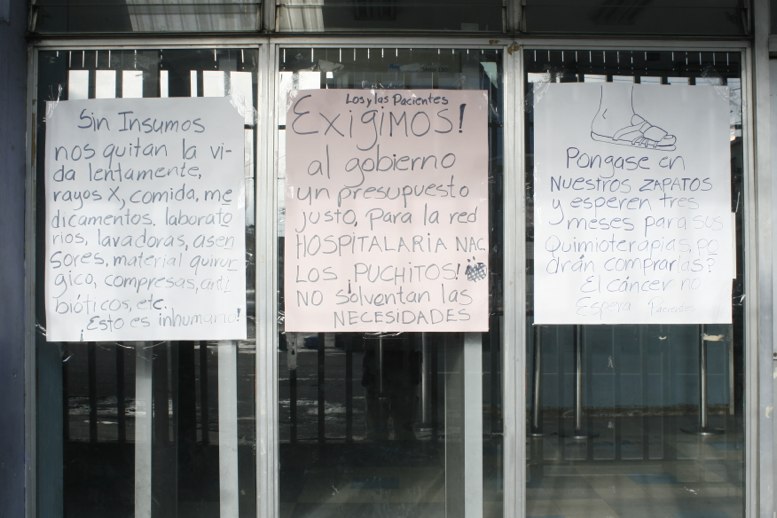 Sin Insumos
nos quitan la vi-
da lentamente,
rayos X, comida, me
dicamentos, laborato
rios, lavadoras, asen
sores, material quirur-
gico, compresas, anti
bióticos, etc.
¡Esto es inhumano!
Los y las Pacientes
EXIGIMOS!
al gobierno
un presupuesto
justo, Para la red
HOSPITALARIA NAC.
LOS ¡PUCHITOS!
NO solventan las
NECESIDADES
Pongase en
NUESTROS ZAPATOS
y esperen tres
meses para sus
Quimioterapias, po
drán comprarlas?
El cáncer no
Espera